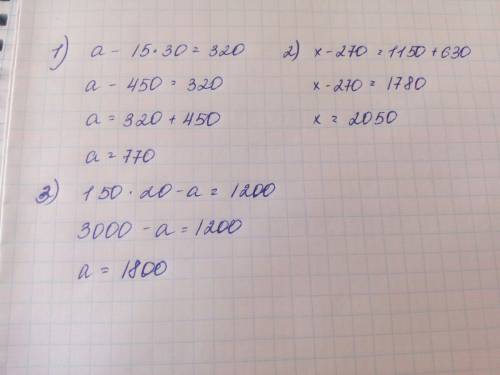 1) a - 15·30 = 320
a - 450 = 320
a = 320 + 450
a = 770
2) x - 270 = 1150 + 630
x - 270 = 1780
x = 2050
3) 150·20 - a = 1200
3000 - a = 1200
a = 1800